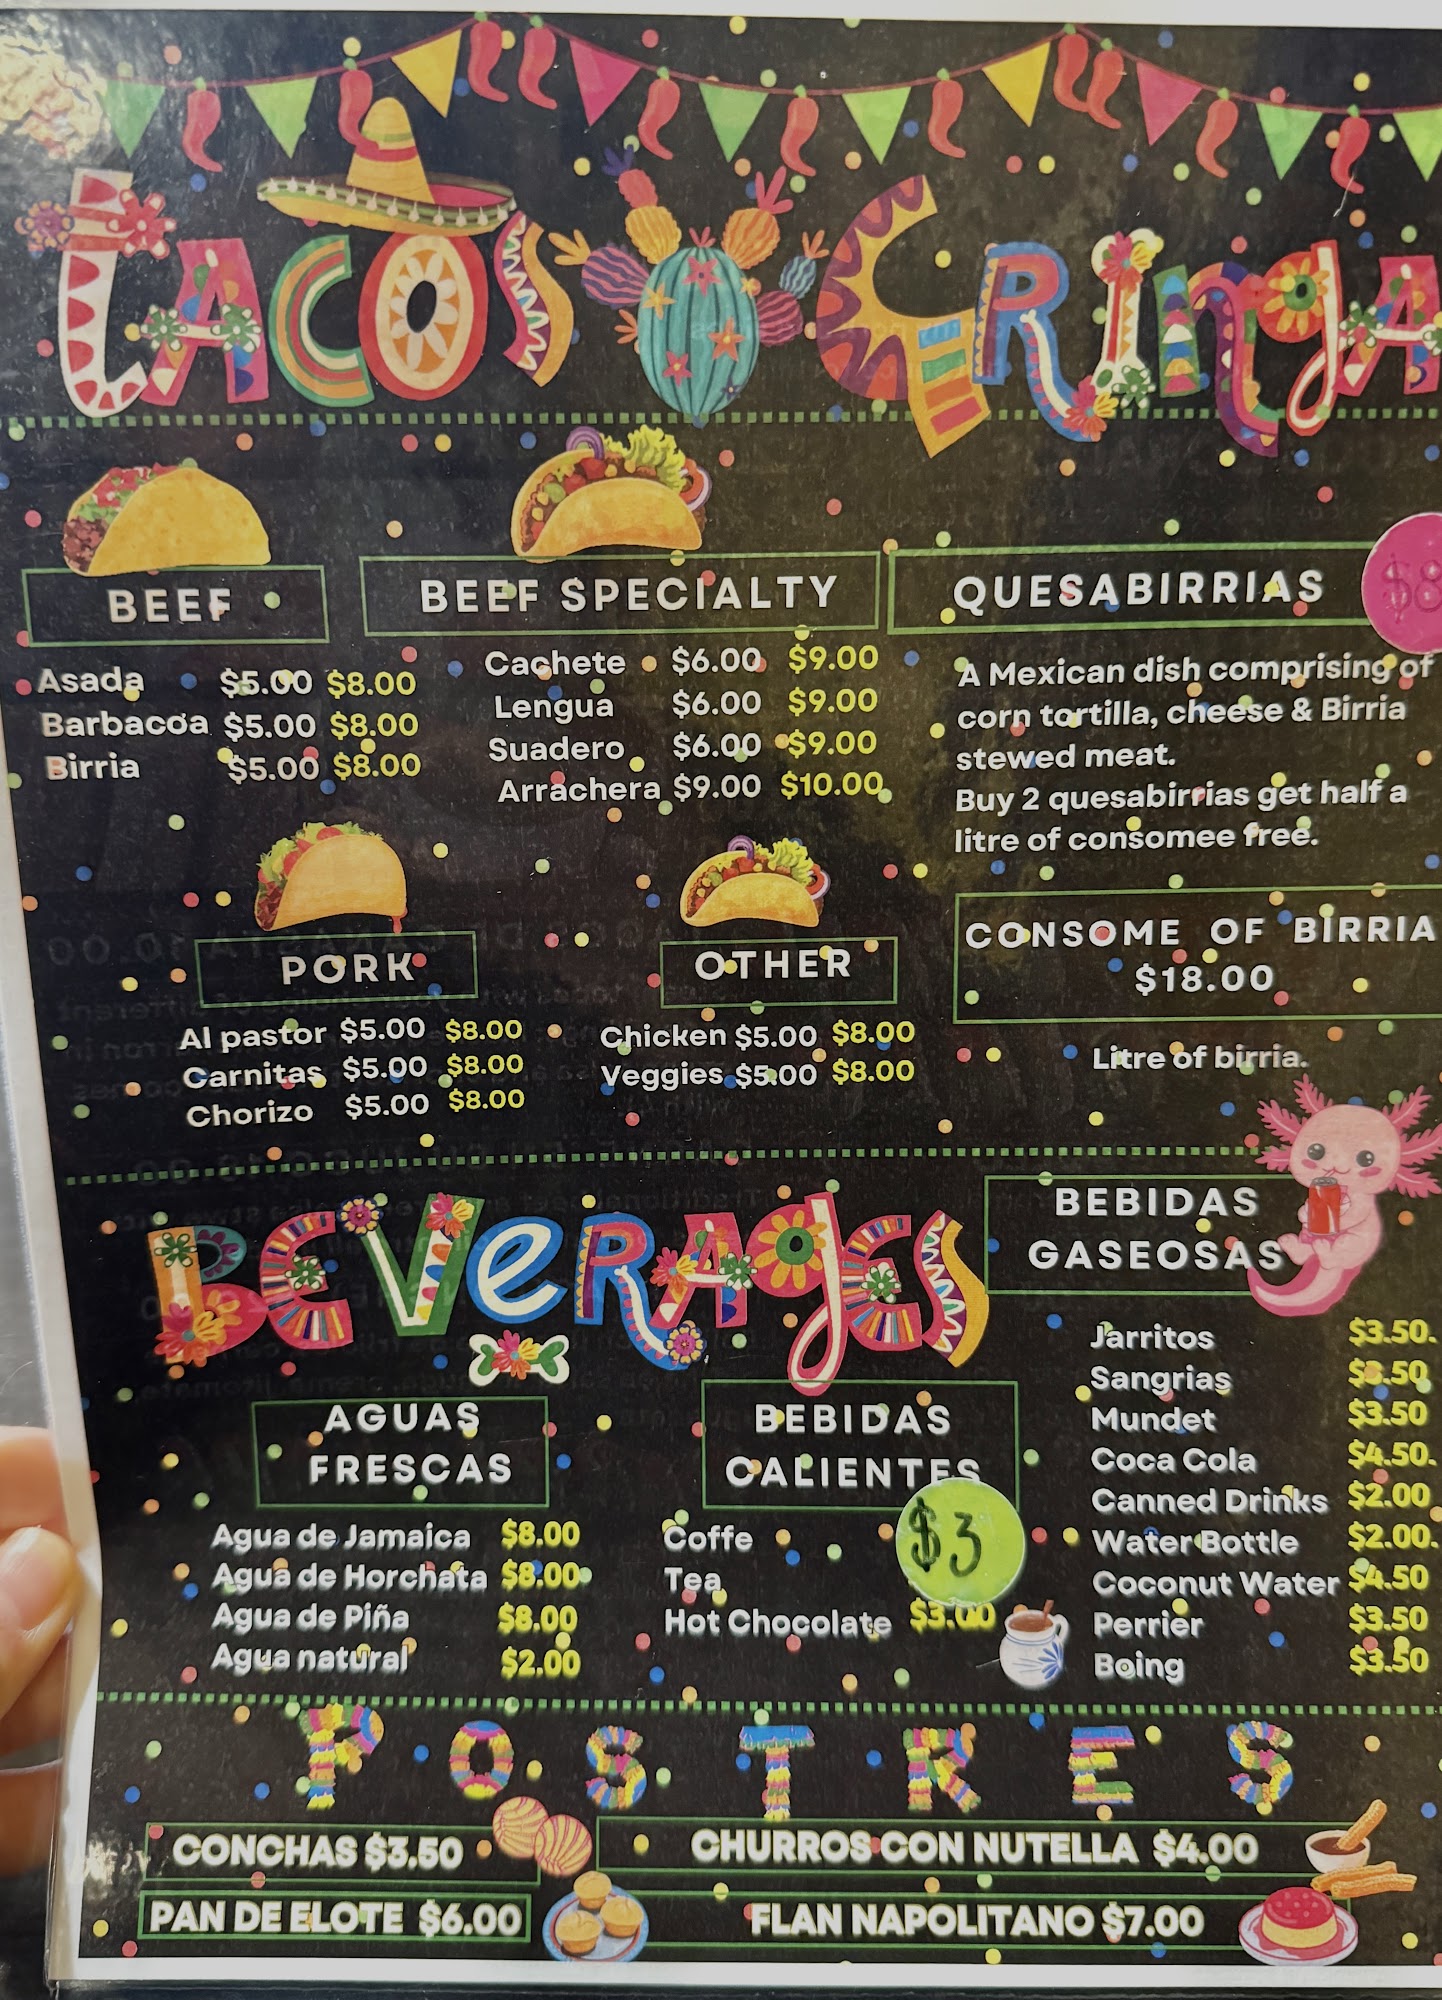 TACOS GRINGA
BEEF
Asada $5.00 $8.00
Barbacoa $5.00 $8.00
Birria $5.00 $8.00
BEEF SPECIALTY
Cachete $6.00 $9.00
Lengua $6.00 $9.00
Suadero $6.00 $9.00
Arrachera $9.00 $10.00
QUESABIRRIAS
$8
A Mexican dish comprising of
corn tortilla, cheese & Birria
stewed meat.
Buy 2 quesabirrias get half a
litre of consomee free.
PORK
Al pastor $5.00 $8.00
Carnitas $5.00 $8.00
Chorizo $5.00 $8.00
OTHER
Chicken $5.00 $8.00
Veggies $5.00 $8.00
CONSOME OF BIRRIA
$18.00
Litre of birria.
BEVERAGES
AGUAS
FRESCAS
Agua de Jamaica $8.00
Agua de Horchata $8.00
Agua de Piña $8.00
Agua natural $2.00
BEBIDAS
CALIENTES
$3
Coffe
Tea
Hot Chocolate $3.00
BEBIDAS
GASEOSAS
Jarritos $3.50.
Sangrias $3.50
Mundet $3.50
Coca Cola $4.50.
Canned Drinks $2.00
Water Bottle $2.00.
Coconut Water $4.50
Perrier $3.50
Boing $3.50
POSTRES
CONCHAS $3.50
CHURROS CON NUTELLA $4.00
PAN DE ELOTE $6.00
FLAN NAPOLITANO $7.00